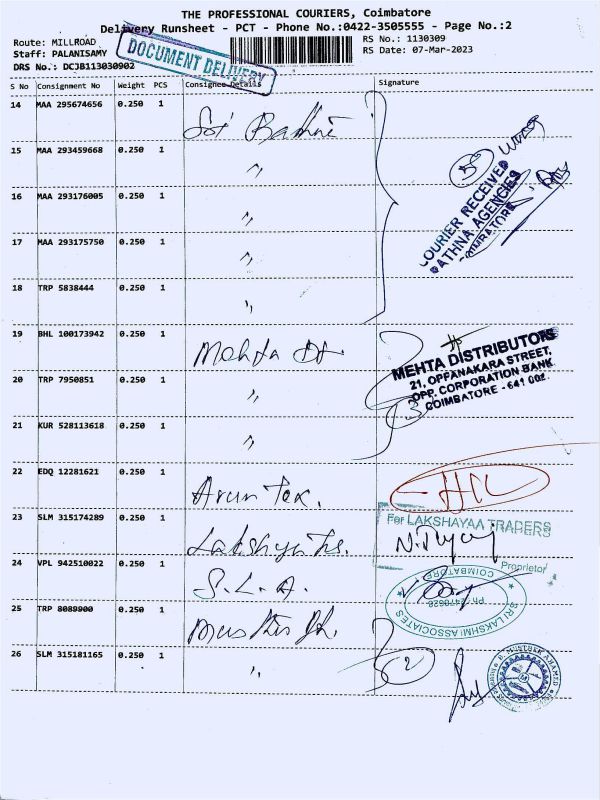 THE PROFESSIONAL COURIERS, Coimbatore
Delivery Runsheet - PCT - Phone No.:0422-3505555 - Page No.:2
Route: MILLROAD
RS No.: 1130309
Staff: PALANISAMY
RS Date: 07-Mar-2023
DRS No.: DCJB113030902
DOCUMENT DELIVERY
S No Consignment No Weight PCS Consignee Details Signature
14 MAA 295674656 0.250 1
15 MAA 293459668 0.250 1 〃
16 MAA 293176005 0.250 1 〃
17 MAA 293175750 0.250 1 〃
18 TRP 5838444 0.250 1 〃
COURIER RECEIVED
RATHNA AGENCIES
COIMBATORE
5
19 BHL 100173942 0.250 1 Mehta
20 TRP 7950851 0.250 1 〃
21 KUR 528113618 0.250 1 〃
MEHTA DISTRIBUTORS
21, OPPANAKARA STREET,
OPP. CORPORATION BANK
COIMBATORE - 641 001.
3
22 EDQ 12281621 0.250 1 Arun Tex.
23 SLM 315174289 0.250 1
For LAKSHAYAA TRADERS
Proprietor
24 VPL 942510022 0.250 1 S.L.A.
SRI LAKSHMI ASSOCIATES
Ph: 2470620
COIMBATORE
25 TRP 8089900 0.250 1
26 SLM 315181165 0.250 1 〃
2